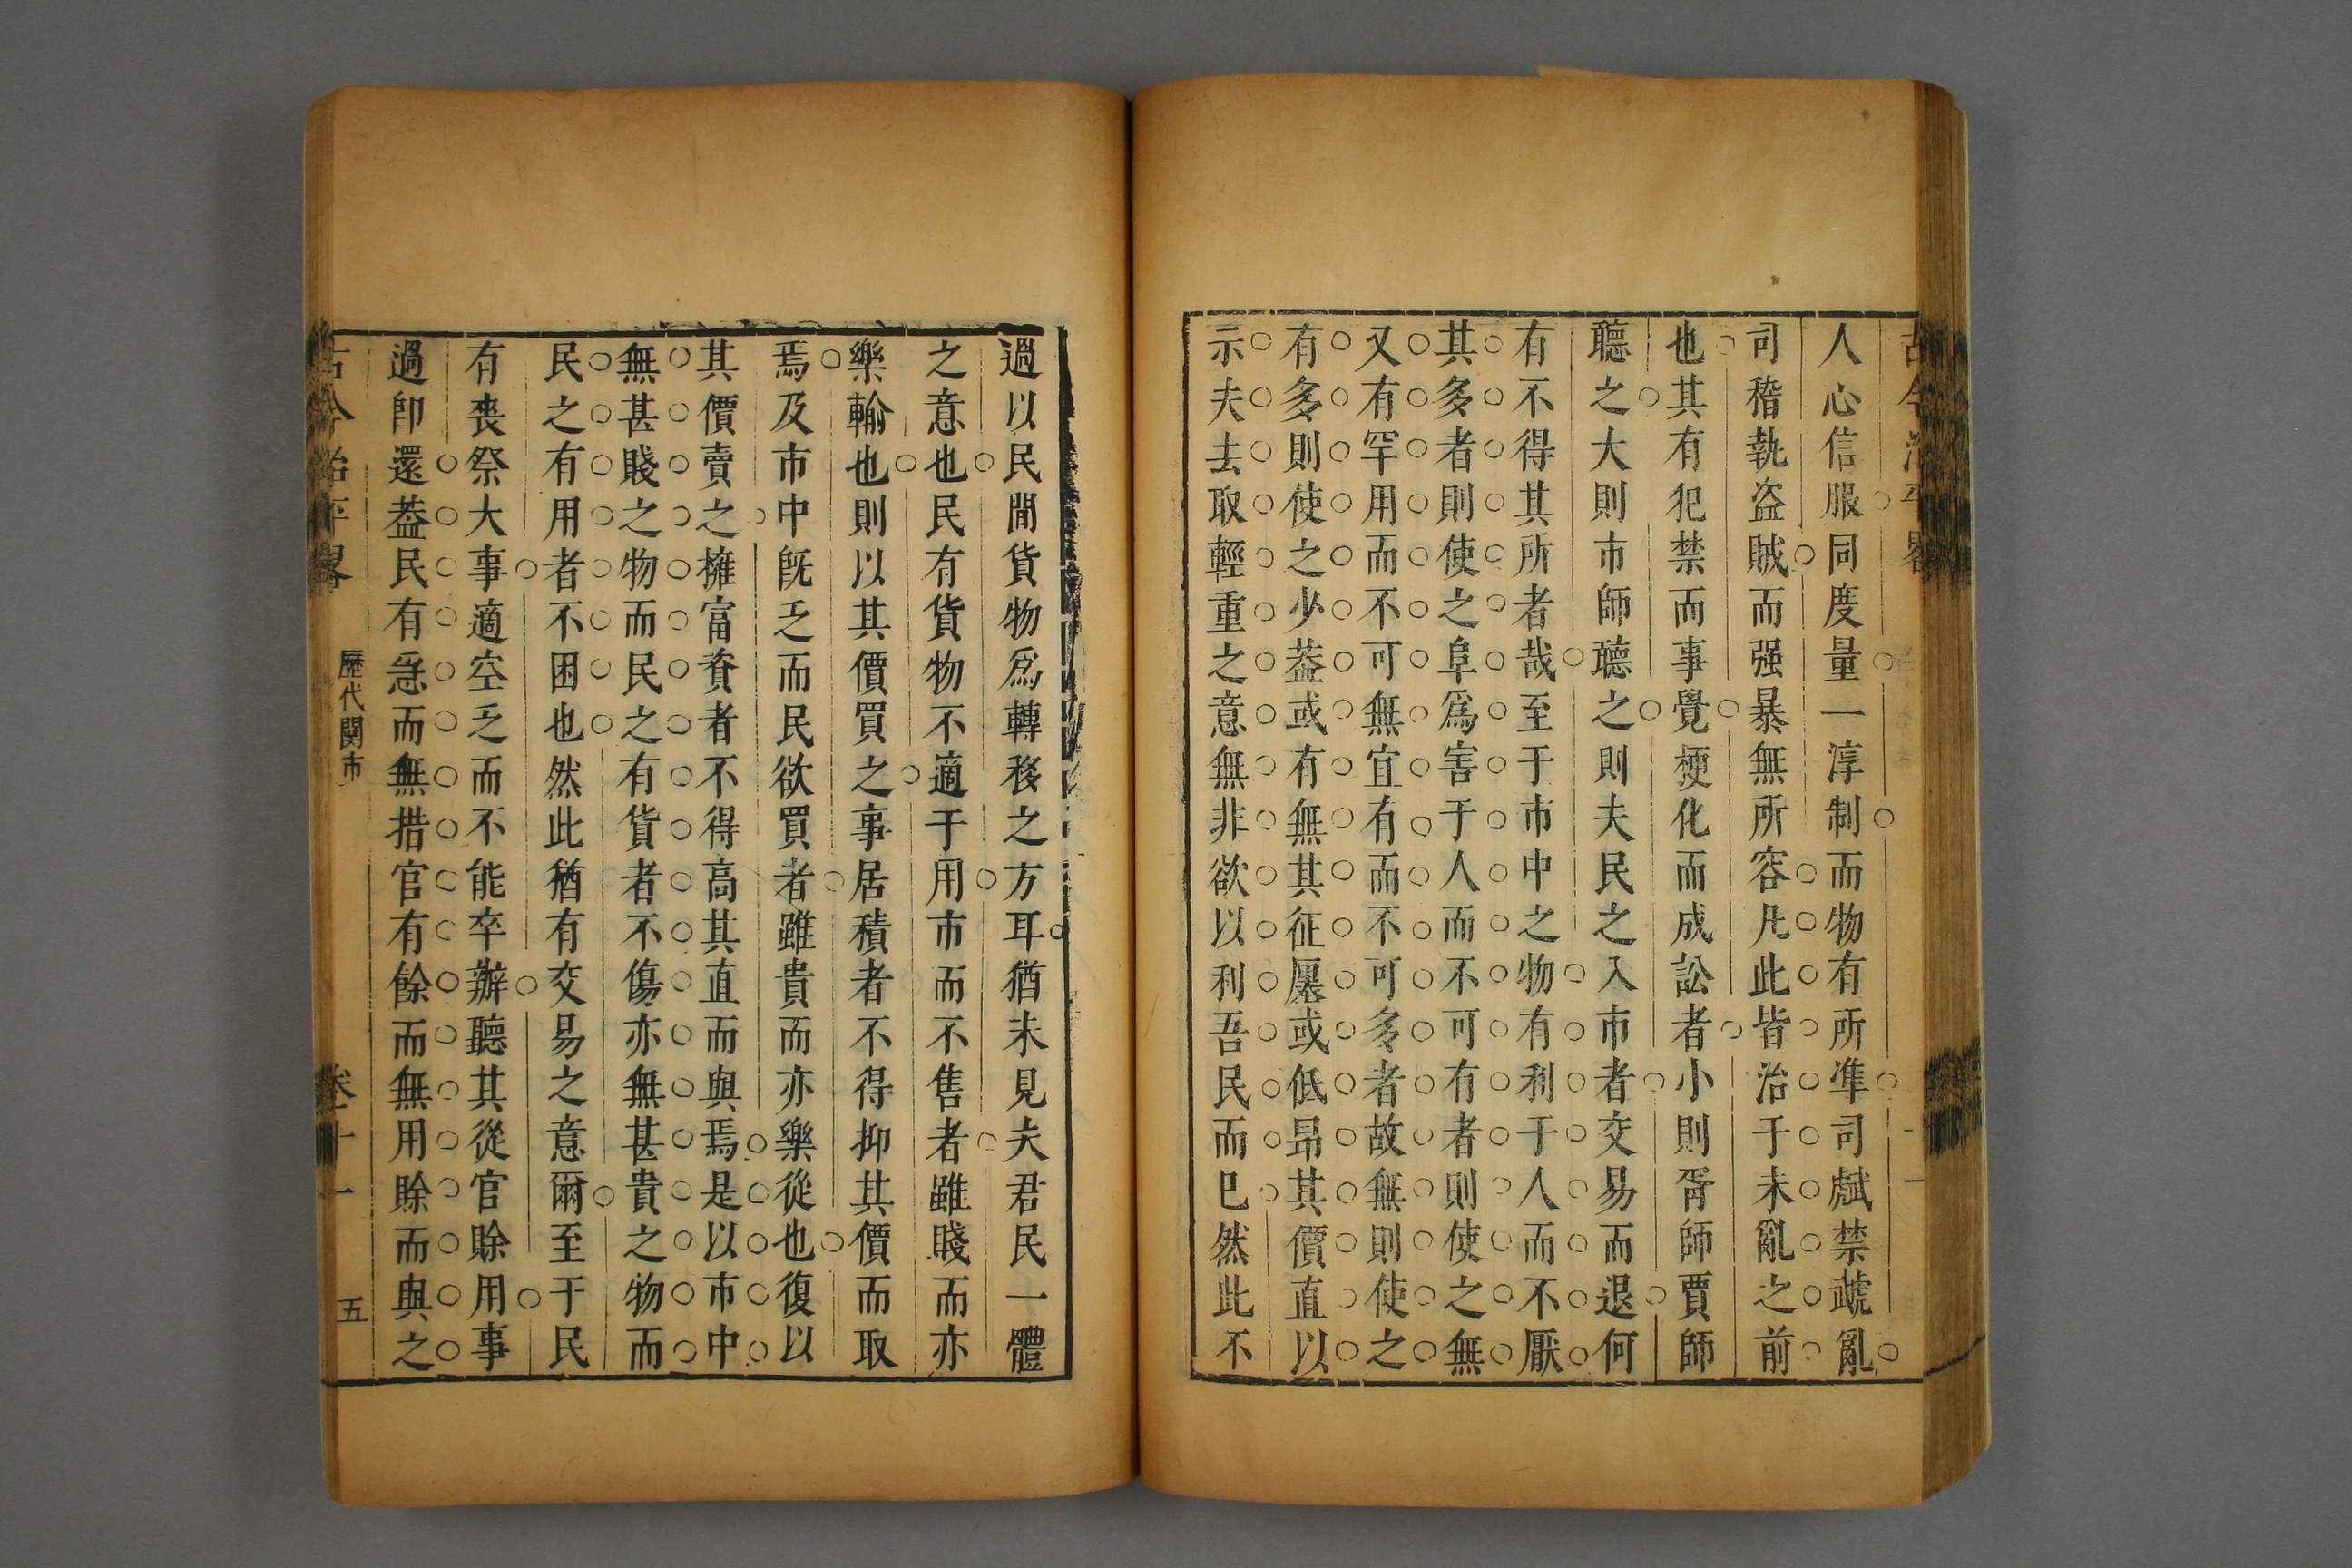 古今治平畧
人心信服同度量一淳制而物有所凖司虣禁虣亂
司稽執盗賊而强暴無所容凡此皆治于未亂之前
也其有犯禁而事覺梗化而成訟者小則胥師賈師
聽之大則市師聽之則夫民之入市者交易而退何
有不得其所者哉至于市中之物有利于人而不厭
其多者則使之阜爲害于人而不可有者則使之無
又有罕用而不可無宜有而不可多者故無則使之
有多則使之少葢或有無其征廛或低昻其價直以
示夫去取輕重之意無非欲以利吾民而巳然此不
過以民間貨物爲轉移之方耳猶未見夫君民一體
之意也民有貨物不適于用市而不售者雖賤而亦
樂輸也則以其價買之事居積者不得抑其價而取
焉及市中旣乏而民欲買者雖貴而亦樂從也復以
其價賣之擁富資者不得高其直而與焉是以市中
無甚賤之物而民之有貨者不傷亦無甚貴之物而
民之有用者不困也然此猶有交易之意爾至于民
有喪祭大事適空乏而不能卒辦聽其從官賒用事
過卽還葢民有急而無措官有餘而無用賒而與之
古今治平畧
歷代関市
卷十一
五